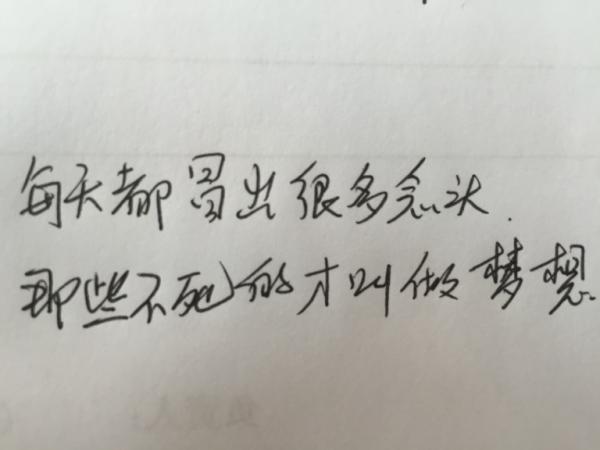 每天都冒出很多念头.
那些不死的才叫做梦想.